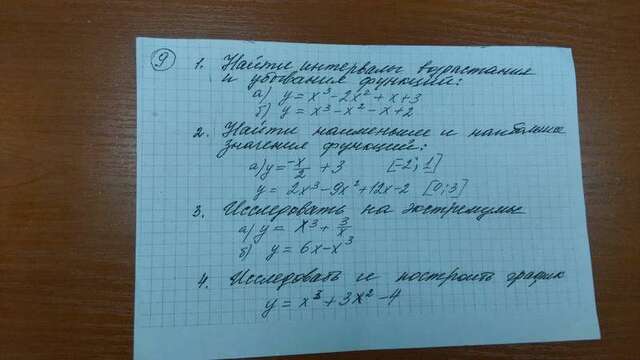 9
1. Найти интервалы возрастания
и убывания функций:
а) y = x³ - 2x² + x + 3
б) y = x³ - x² - x + 2
2. Найти наименьшее и наибольшие
значения функций:
а) y = -x/2 + 3 [-2; 1]
y = 2x³ - 9x² + 12x - 2 [0; 3]
3. Исследовать на экстремумы
а) y = x³ + 3/x
б) y = 6x - x³
4. Исследовать и построить график
y = x³ + 3x² - 4